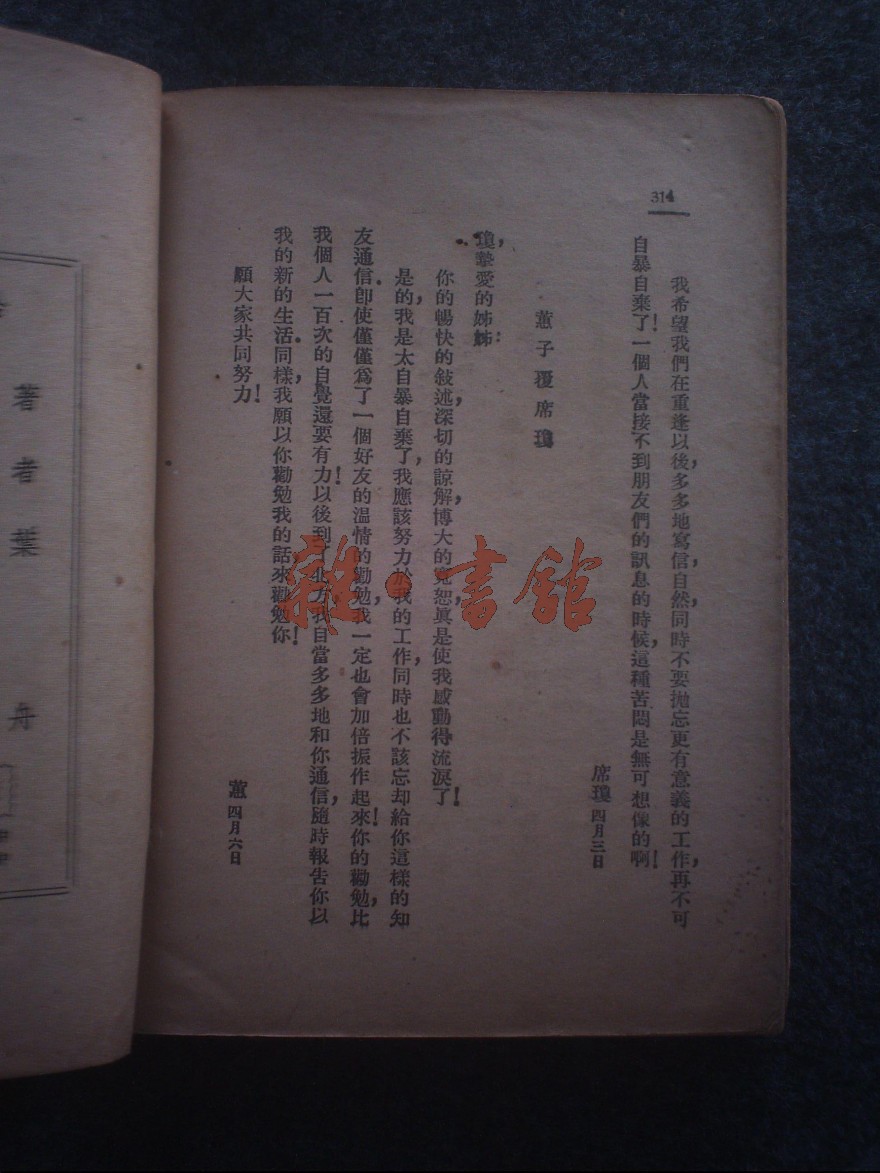 314
我希望我們在重逢以後，多多地寫信，自然同時不要拋忘更有意義的工作，再不可
自暴自棄了！一個人當接不到朋友們的訊息的時候，這種苦悶是無可想像的啊！
席瓊 四月三日
蕙子覆席瓊
瓊，摯愛的姊姊：
你的暢快的敍述，深切的諒解，博大的寬恕，眞是使我感動得流淚了！
是的，我是太自暴自棄了，我應該努力於我的工作，同時也不該忘却給你這樣的知
友通信。卽使僅僅爲了一個好友的溫情的勸勉，我一定也會加倍振作起來！你的勸勉，比
我個人一百次的自覺還要有力！以後到了北方，我自當多多地和你通信，隨時報告你以
我的新的生活。同樣，我願以你勸勉我的話，來勸勉你！
願大家共同努力！
蕙 四月六日
著者葉 舟
雜·書館